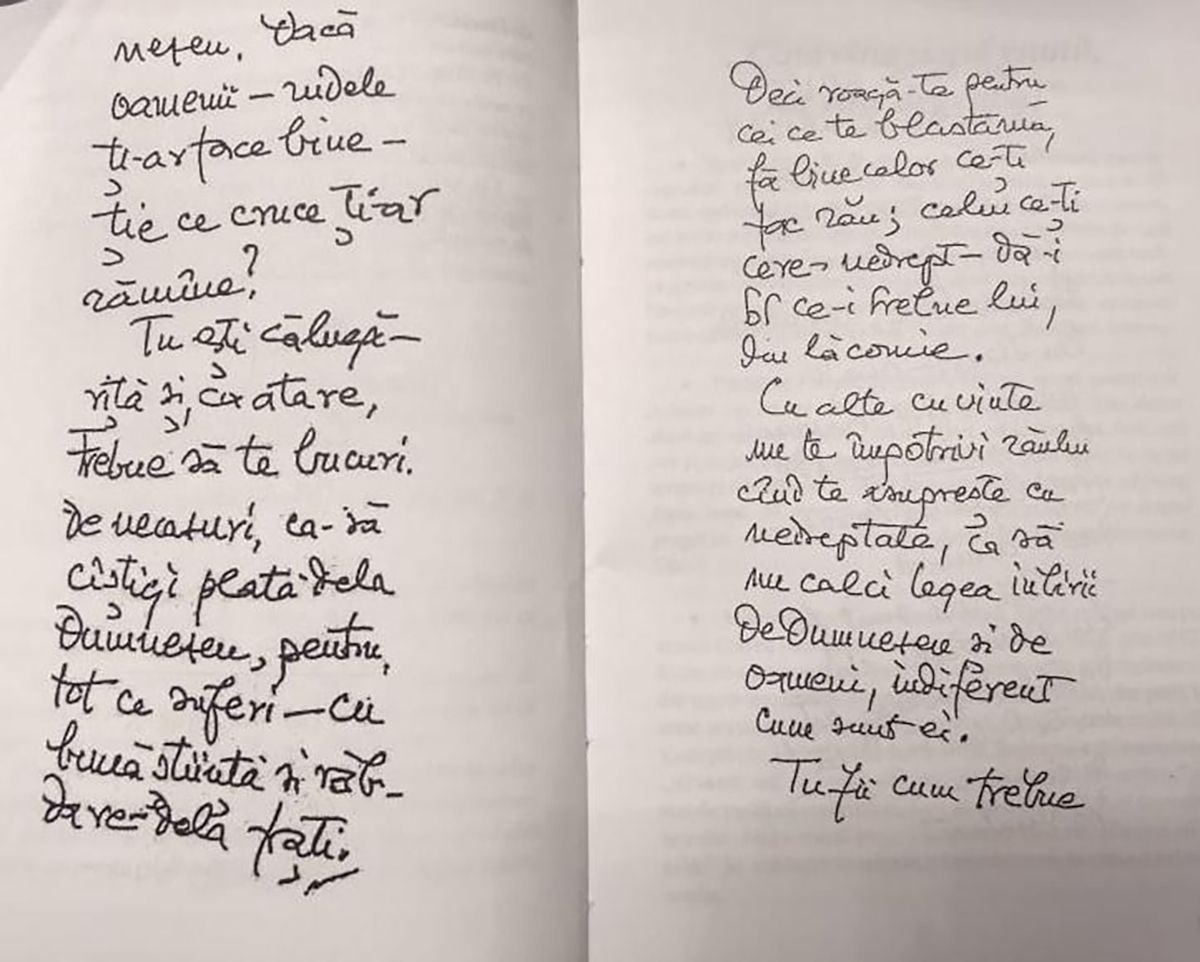 nezeu. Dacă
oamenii – rudele
ți-ar face bine –
ție ce cruce ți-ar
rămîne?
Tu ești călugă–
riță și, ca atare,
trebue să te bucuri.
de necazuri, ca-să
cîștigi plată dela
Dumnezeu, pentru,
tot ce suferi – cu
bună știință și răb–
dare – dela frați.
Deci roagă-te pentru
cei ce te blastămă,
fă bine celor ce-ți
fac rău; celui ce-ți
cere – nedrept – dă-i
ce-i trebue lui,
din lăcomie.
Cu alte cuvinte
nu te împotrivi răului
cînd te asuprește cu
nedreptate, ca să
nu calci legea iubirii
De Dumnezeu și de
oameni, indiferent
cum sunt ei.
Tu fii cum trebue